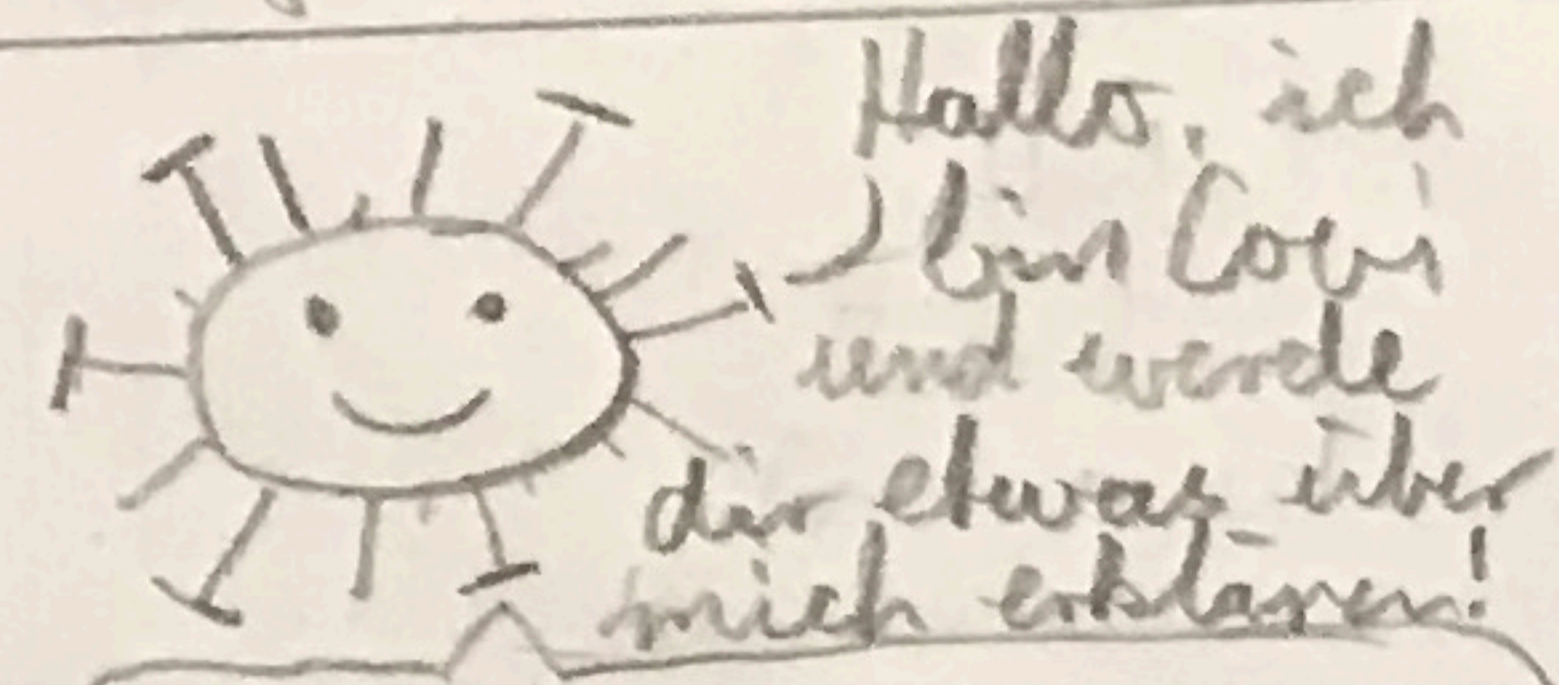 Hallo, ich
bin Covi
und werde
dir etwas über
mich erklären!